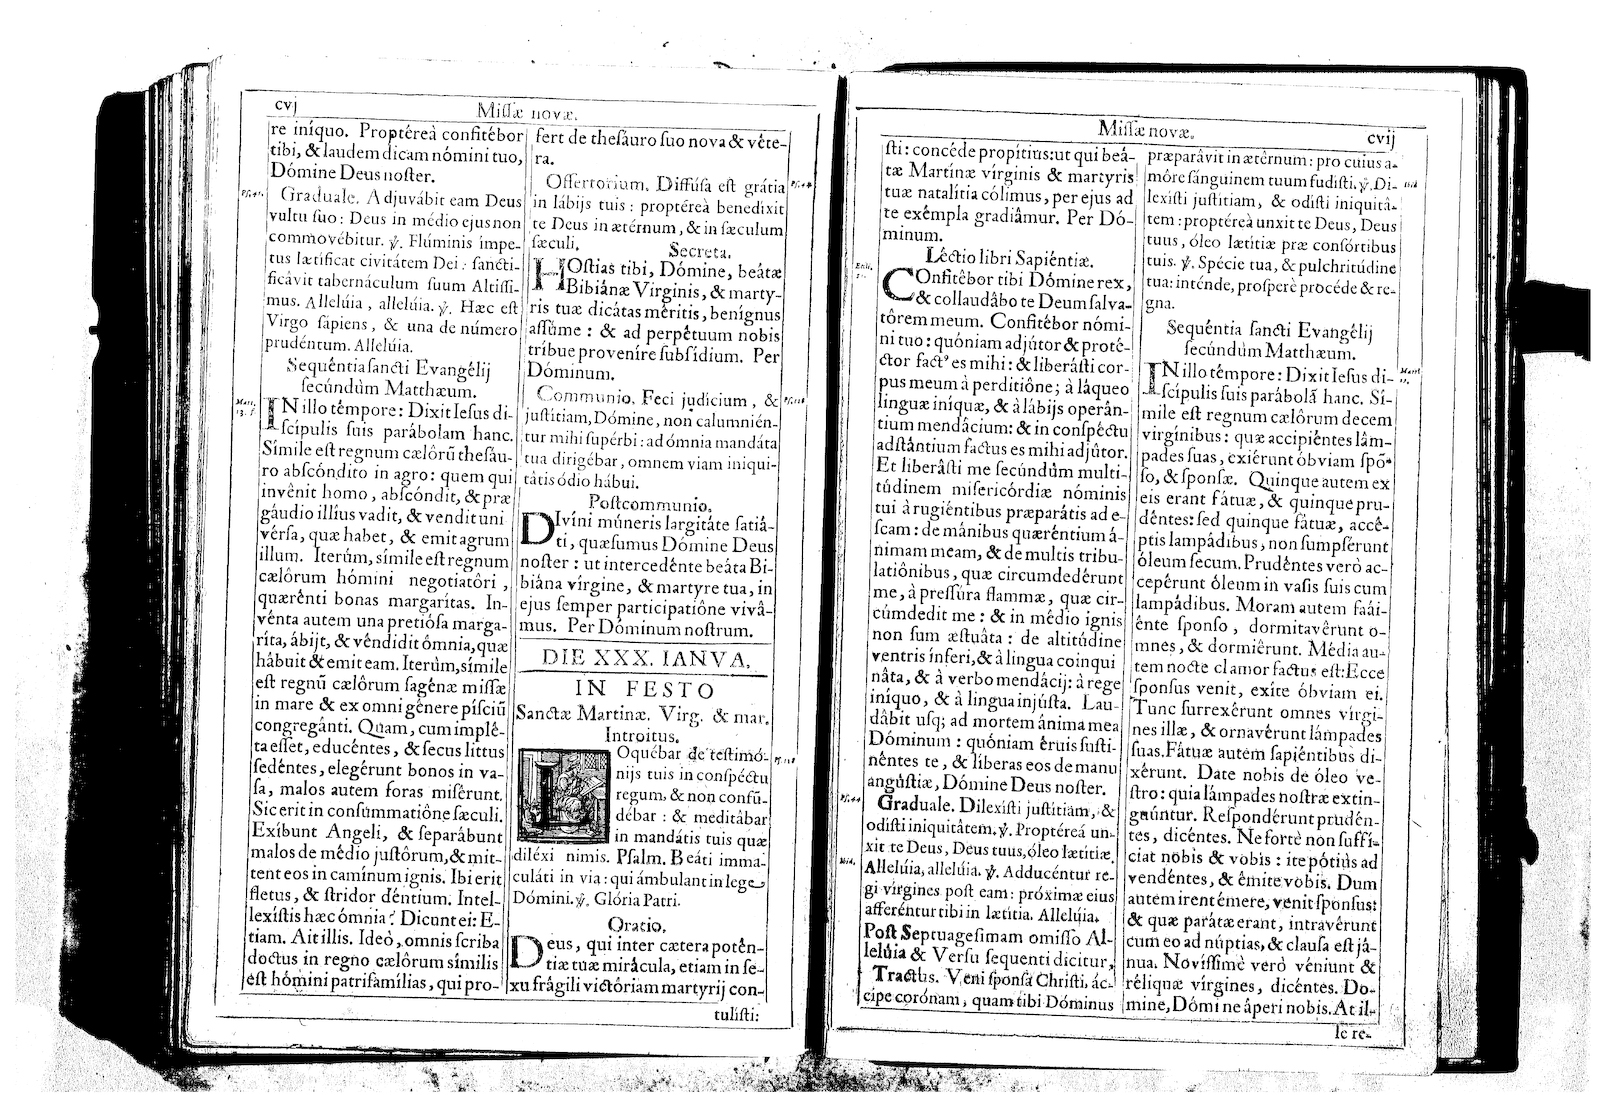 cvj
Missæ novæ.
re iníquo. Proptéreà confitébor
tibi, & laudem dicam nómini tuo,
Dómine Deus noster.
Graduale. Adjuvábit eam Deus
vultu suo: Deus in médio ejus non
commovébitur. ℣. Flúminis ímpe-
tus lætíficat civitátem Dei: sanctí-
ficávit tabernáculum suum Altíssi-
mus. Allelúia, allelúia. ℣. Hæc est
Virgo sápiens, & una de número
prudéntum. Allelúia.
Sequéntia sancti Evangélij
secúndùm Matthæum.
IN illo témpore: Dixit Iesus di-
scípulis suis parábolam hanc.
Símile est regnum cælórũ thesáu-
ro abscóndito in agro: quem qui
invênit homo, abscóndit, & præ
gáudio illíus vadit, & vendit uni
vérsa, quæ habet, & emit agrum
illum. Iterùm, símile est regnum
cælôrum hómini negotiatôri,
quærénti bonas margarítas. In-
vénta autem una pretiósa marga-
ríta, ábijt, & véndidit ómnia, quæ
hábuit & emit eam. Iterùm, símile
est regnũ cælôrum sagénæ missæ
in mare & ex omni génere písciũ
congregánti. Quam, cum implé-
ta esset, educéntes, & secus littus
sedéntes, elegérunt bonos in va-
sa, malos autem foras misérunt.
Sic erit in consummatiône sæculi.
Exíbunt Angeli, & separábunt
malos de médio justôrum, & mit-
tent eos in camínum ignis. Ibi erit
fletus, & stridor déntium. Intel-
lexístis hæc ómnia? Dicunt ei: E-
tiam. Ait illis. Ideò, omnis scriba
doctus in regno cælôrum símilis
est hómini patrifamílias, qui pro-
fert de thesáuro suo nova & véte-
ra.
Offertorium. Diffúsa est grátia
in lábijs tuis: proptéreà benedíxit
te Deus in ætérnum, & in sæculum
sæculi.
Secreta.
HOstias tibi, Dómine, beátæ
Bibiánæ Vírginis, & marty-
ris tuæ dicátas méritis, benígnus
assúme: & ad perpétuum nobis
tríbue proveníre subsídium. Per
Dóminum.
Communio. Feci judícium, &
justítiam, Dómine, non calumnién-
tur mihi supérbi: ad ómnia mandáta
tua dirigébar, omnem viam iniqui-
tátis ódio hábui.
Postcommunio.
DIvíni múneris largitáte satiá-
ti, quæsumus Dómine Deus
noster: ut intercedénte beáta Bi-
biána vírgine, & martyre tua, in
ejus semper participatiône vivâ-
mus. Per Dóminum nostrum.
DIE XXX. IANVA.
IN FESTO
Sanctæ Martinæ. Virg. & mar.
Introitus.
LOquébar de testimó-
nijs tuis in conspéctu
regum, & non confũ-
débar: & meditábar
in mandátis tuis quæ
diléxi nimis. Psalm. Beáti imma-
culáti in via: qui ámbulant in lege
Dómini. ℣. Glória Patri.
Oratio.
Deus, qui inter cætera potén-
tiæ tuæ mirácula, etiam in se-
xu frágili victóriam martyrij con-
tulísti:
Missæ novæ.
cvij
sti: concéde propítius: ut qui beá-
tæ Martínæ vírginis & martyris
tuæ natalítia cólimus, per ejus ad
te exémpla gradiâmur. Per Dó-
minum.
Léctio libri Sapiéntiæ.
COnfitébor tibi Dómine rex,
& collaudâbo te Deum salva-
tôrem meum. Confitébor nómi-
ni tuo: quóniam adjútor & proté-
ctor fact⁹ es mihi: & liberásti cor-
pus meum à perditiône; à láqueo
linguæ iníquæ, & à lábijs operán-
tium mendácium: & in conspéctu
adstántium factus es mihi adjûtor.
Et liberásti me secúndùm multi-
túdinem misericórdiæ nóminis
tui à rugiéntibus præparátis ad e-
scam: de mánibus quæréntium á-
nimam meam, & de multis tribu-
latiônibus, quæ circumdedérunt
me, à pressúra flammæ, quæ cir-
cúmdedit me: & in médio ignis
non sum æstuáta: de altitúdine
ventris ínferi, & à lingua coinqui
nâta, & à verbo mendácij: à rege
iníquo, & à lingua injústa. Lau-
dâbit usq; ad mortem ánima mea
Dóminum: quóniam éruis susti-
néntes te, & líberas eos de manu
angústiæ, Dómine Deus noster.
Graduale. Dilexísti justítiam, &
odísti iniquitâtem. ℣. Proptéreá un-
xit te Deus, Deus tuus, óleo lætítiæ.
Allelúia, allelúia. ℣. Adducéntur re-
gi vírgines post eam: próximæ eius
afferéntur tibi in lætítia. Allelúia.
Post Septuagesimam omisso Al-
lelúia & Versu sequenti dicitur,
Tractus. Veni sponsa Christi, ác-
cipe corónam, quam tibi Dóminus
præparâvit in ætérnum: pro cuius a-
móre sánguinem tuum fudísti. ℣. Di-
lexísti justítiam, & odísti iniquitâ-
tem: proptéreà unxit te Deus, Deus
tuus, óleo lætítiæ præ consórtibus
tuis. ℣. Spécie tua, & pulchritúdine
tua: inténde, prosperè procéde & re-
gna.
Sequéntia sancti Evangélij
secúndùm Matthæum.
IN illo témpore: Dixit Iesus di-
scípulis suis parábolã hanc. Sí-
mile est regnum cælôrum decem
virgínibus: quæ accipiéntes lâm-
pades suas, exiérunt óbviam spõ-
so, & sponsæ. Quinque autem ex
eis erant fátuæ, & quinque pru-
déntes: sed quinque fátuæ, accé-
ptis lampádibus, non sumpsérunt
óleum secum. Prudéntes verò ac-
cepérunt óleum in vasis suis cum
lampádibus. Moram autem faái-
énte sponso, dormitavérunt o-
mnes, & dormiérunt. Média au-
tem nocte clamor factus est: Ecce
sponsus venit, exíte óbviam ei.
Tunc surrexérunt omnes vírgi-
nes illæ, & ornavérunt lámpades
suas. Fátuæ autem sapiéntibus di-
xérunt. Date nobis de óleo ve-
stro: quia lámpades nostræ extin-
guúntur. Respondérunt prudén-
tes, dicéntes. Ne fortè non suffí-
ciat nobis & vobis: ite pótiùs ad
vendéntes, & émite vobis. Dum
autem irent émere, venit sponsus:
& quæ parátæ erant, intravérunt
cum eo ad núptias, & clausa est já-
nua. Novíssimè verò véniunt &
réliquæ vírgines, dicéntes. Do-
mine, Dómine âperi nobis. At il-
le re-